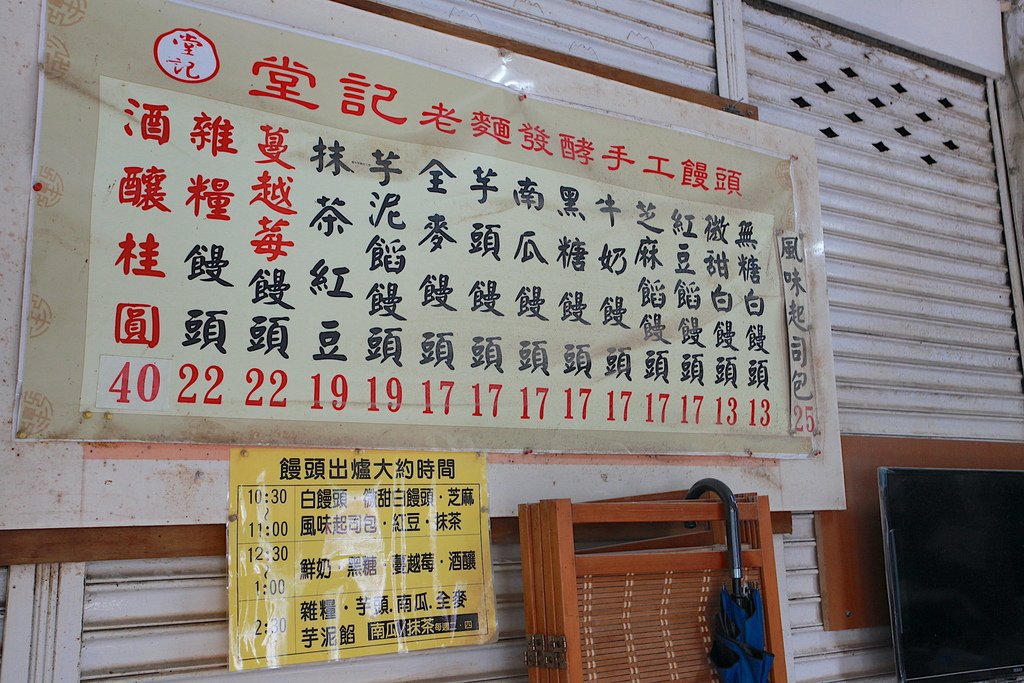 堂記
堂記老麵發酵手工饅頭
風味起司包25
無糖白饅頭13
微甜白饅頭13
紅豆餡饅頭17
芝麻餡饅頭17
牛奶饅頭17
黑糖饅頭17
南瓜饅頭17
芋頭饅頭17
全麥饅頭17
芋泥餡饅頭19
抹茶紅豆19
蔓越莓饅頭22
雜糧饅頭22
酒釀桂圓40
饅頭出爐大約時間
10:30~11:00 白饅頭·微甜白饅頭·芝麻
風味起司包·紅豆·抹茶
12:30~1:00 鮮奶·黑糖·蔓越莓·酒釀
2:30 雜糧·芋頭.南瓜.全麥
芋泥餡 南瓜/抹茶每週二·四